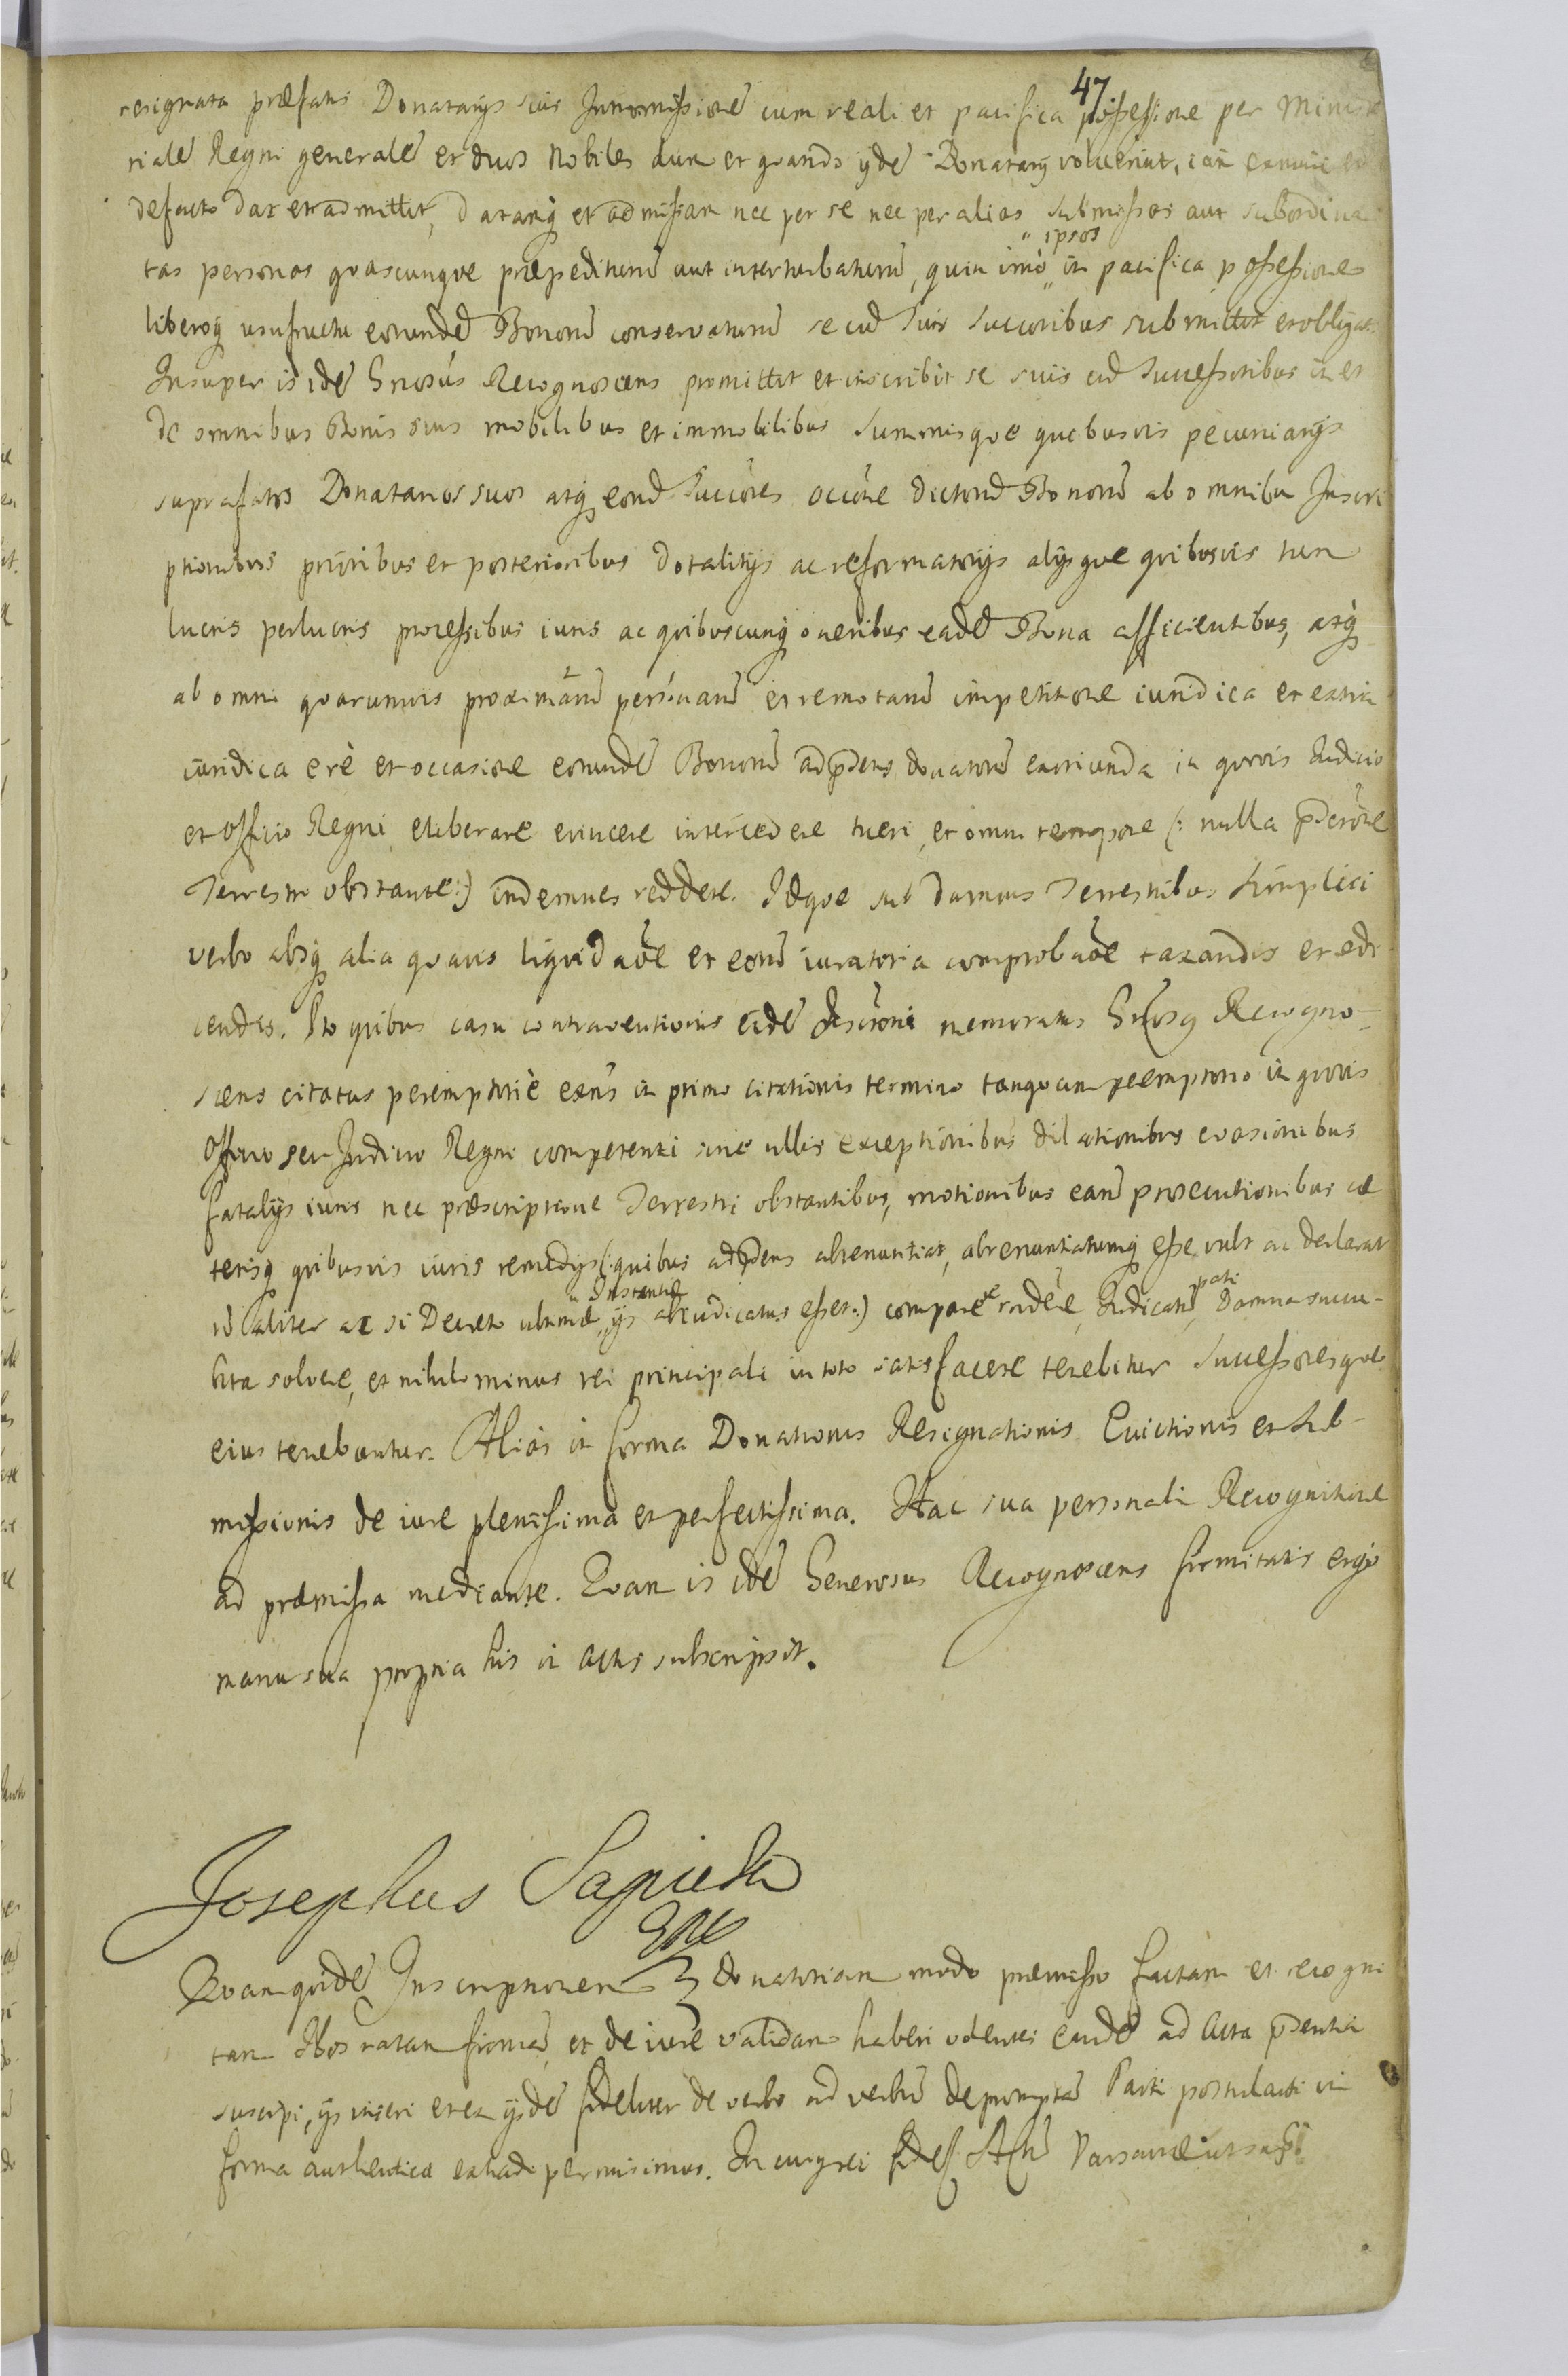 47
resignata præfatis Donatarijs suis Intromissionē cum reali et pacifica possessione per Ministe
rialē Regni generalē et duos Nobiles dum et quando ijdē Donatarij voluerint, iam exnunc et
defacto dat et admittit, datamq et admissam nec per se nec per alias submissas aut subordina
tas personas quascunque præpediturū aut interturbaturū, quin imò " ipsos in pacifica possessione
liberoq usufructu eorundē Bonorū conservaturū se cū suis succoribus submittit et obligat.
Insuper is idē Gnosus Recognoscens promittit et inscribit se suis cū successoribus in et
de omnibus Bonis suis mobilibus et immobilibus summisque quibusvis pecuniarijs
suprafatos Donatarios suos atq eorū succōres occōne dictorū Bonorū ab omnibus Inscri
ptionibus prioribus et posterioribus dotalitijs ac reformatorijs alijsque quibusvis tum
lucris perlucris processibus iuris ac quibuscunq oneribus eadē Bona afficientibus, atq
ab omni quarumvis proximarū personarū et remotarū impetitione iuridica et extra
iuridica erè et occasione eorundē Bonorū ad p̄dens donatorū exoriunda in quovis Iudicio
et Officio Regni eliberare evincere intercedere tueri, et omni tempore (: nulla p̄scrōne
Terrestri obstante:) indemnes reddere. Idque sub damnis Terrestribus simplici
verbo absq alia quavis liquidaōe et eorū iuratoria comprobaōe taxandis et edi
cendis. Pro quibus casu contraventionis eidē Inscrōni memoratus Gnosq Recogno-
scens citatus peremptoriè exn̄s in primo citationis termino tanquam peremptorio in quovis
Officio seu Iudicio Regni competenti sine ullis exceptionibus dilationibus evasionibus
fatalijs iuris nec præscriptione Terrestri obstantibus, motionibus earū prosecutionibus cæ
terisq quibusvis iuris remedijs (: quibus ad p̄dens abrenuntiat, abrenuntiatumq esse vult ac declarat
nō aliter ac si Decreto ultimæ " Instantiæ ijs abiudicatus esset:) comparere rndere, Iudicatū pati, Damna succu-
bita solvere, et nihilominus rei principali in toto satisfacere tenebitur successoresque
eius tenebuntur. Aliàs in forma Donationis Resignationis Evictionis et Sub-
missionis de iure plenissima et perfectissima. Hac sua personali Recognitione
ad præmissa mediante. Quam is idē Generosus Recognoscens firmitatis ergo
manu sua propria his in Actis subscripsit.
Josephus Sapieha
Quamquidē Inscriptionem donatoriam modo præmisso factam et recogni
tam Nos ratam firmā, et de iure validam haberi volentes eandē ad Acta p̄dentia
suscipi, ijs inseri et ex ijsdē fideliter de verbo ad verbū depromptā Parti postulanti in
forma authentica extradi permisimus. In cuius rei fidē Actū Varsaviæ ut supra